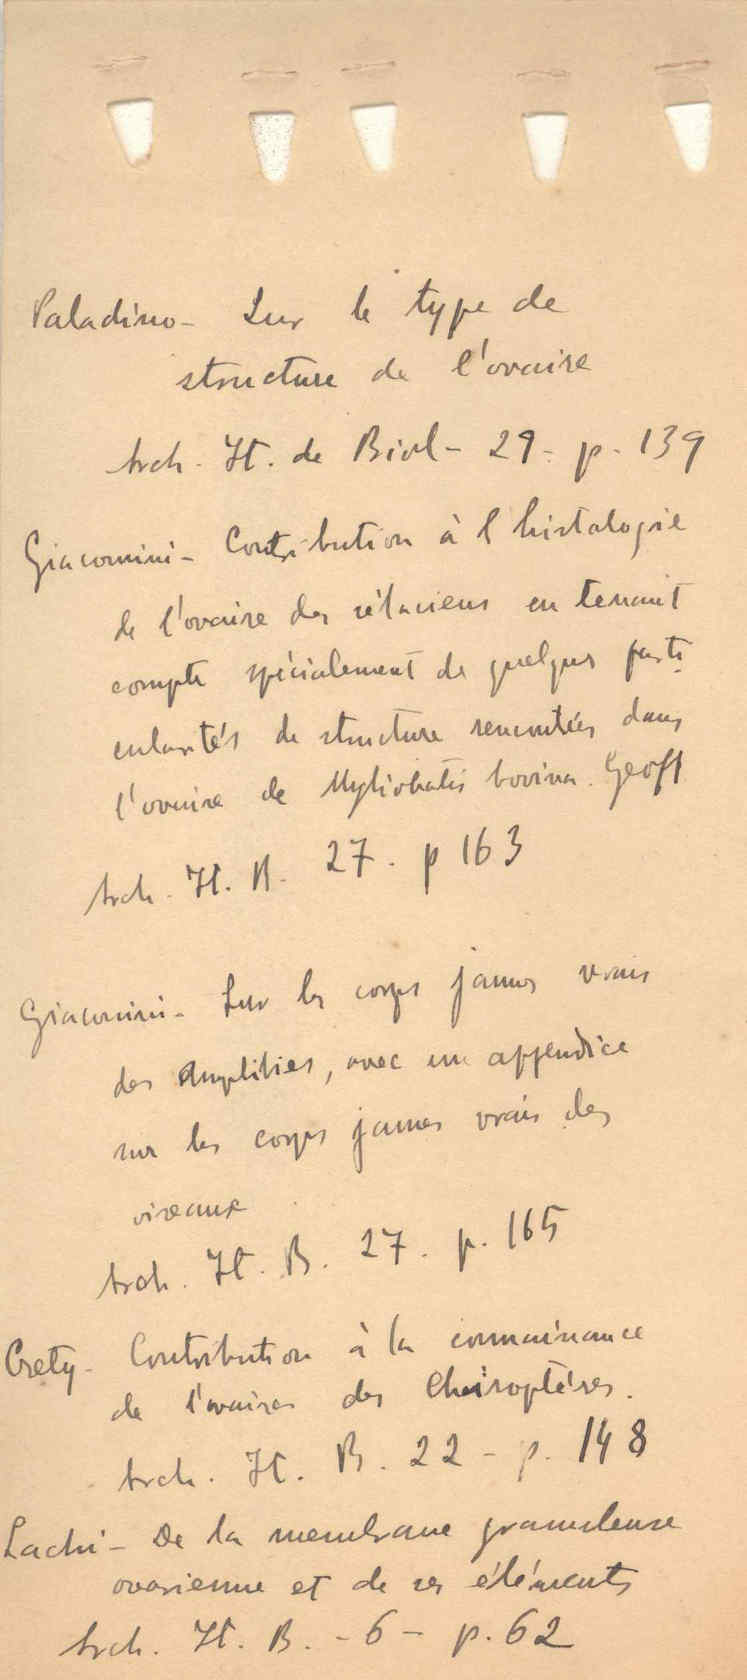 Paladino - Sur le type de
structure de l'ovaire
Arch. It. de Biol - 29 - p. 139
Giacomini - Contribution à l'histologie
de l'ovaire des sélaciens en tenant
compte spécialement de quelques parti
cularités de structure rencontrées dans
l'ovaire de Myliobatis bovina. Geoff
Arch. It. B. 27. p 163
Giacomini - Sur les corps jaunes vrais
des amphibies, avec un appendice
sur les corps jaunes vrais des
oiseaux
Arch. It. B. 27. p. 165
Crety - Contribution à la connaissance
de l'ovaires des Cheiroptères.
Arch. It. B. 22 - p. 148
Lachi - De la membrane granuleuse
ovarienne et de ses éléments
Arch. It. B. - 6 - p. 62